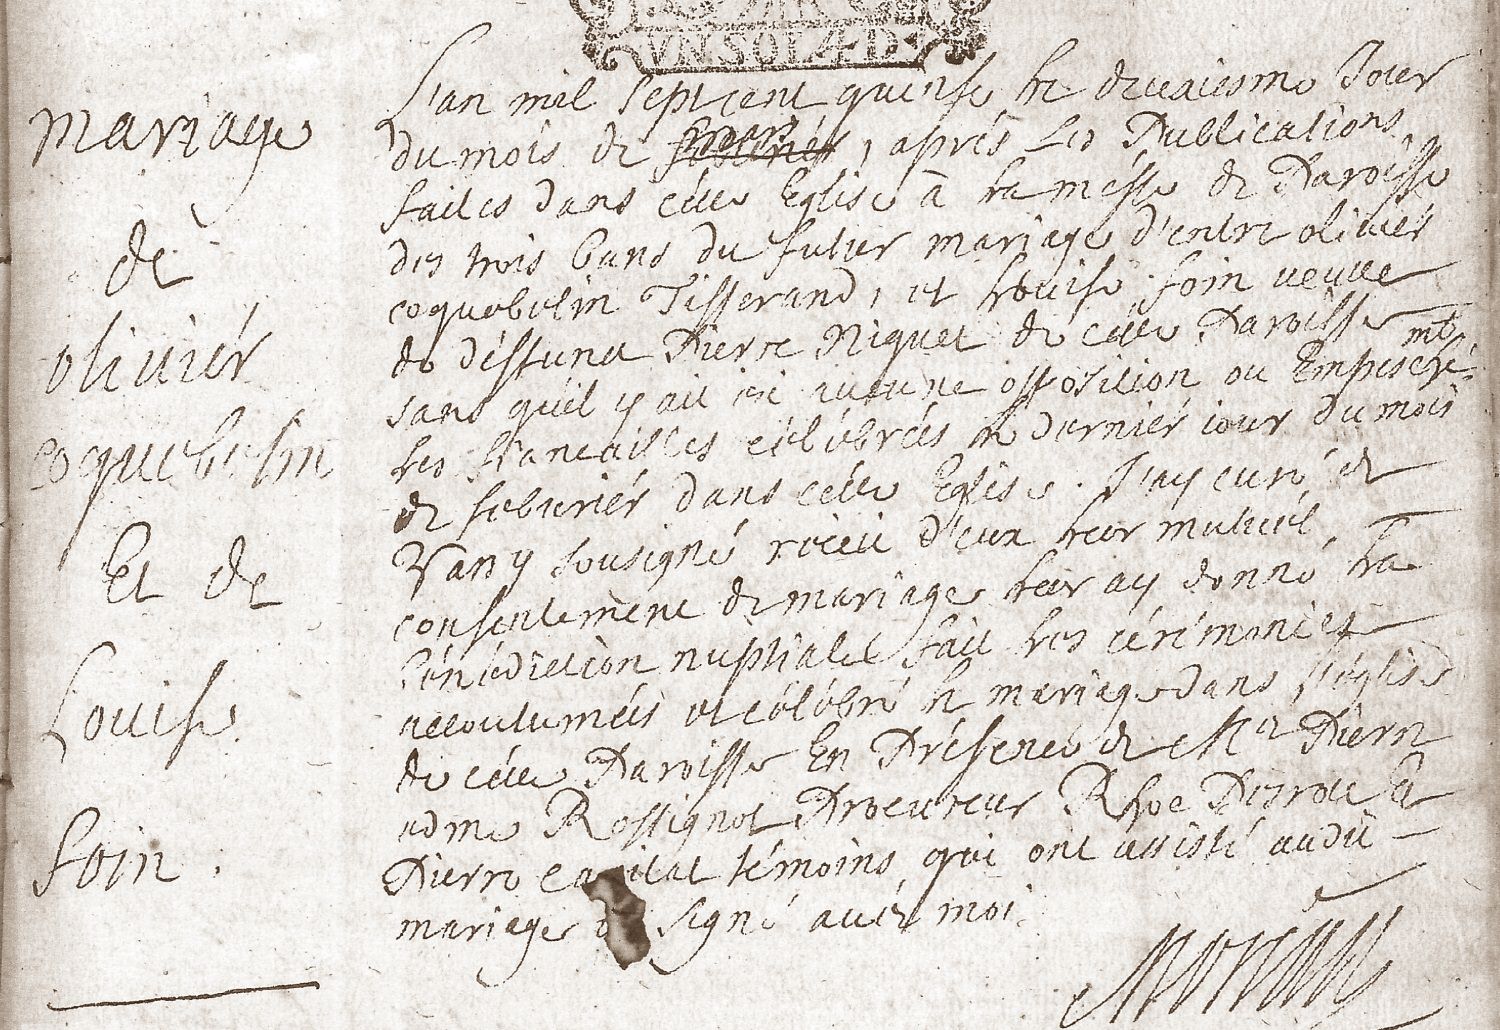 VN SOL 4 D
mariage
de
oliuiér
coquebelin
Et de
Louise
foin.
L'an mil sept cent quinse le deuxiesme Jour
du mois de mars, aprés Les Publications
faites dans cette Eglise à La messe de Paroisse
des trois bans du futur mariage d'entre oliuiér
coquebelin Tisserand, et Louise foin veuue
de déffunct Pierre Niquet de cette Paroisse
sans qu'il y ait eü aucune opposition ou Empeschémt.
Les fiancailles célébrées le derniér iour du mois
de feburiér dans cette Eglise. J'ay curé de
sousigné réceu d'eux leur mutuél
consentement de mariage leur ay donné La
bénédiction nuptiale fait les cérémonies
accoutumées et célébré le mariage dans l'église
de cette Paroisse En Présence de Mr Pierre
edme Rossignol Procureur
Pierre témoins qui ont assisté audit
mariage signé auéc moi.